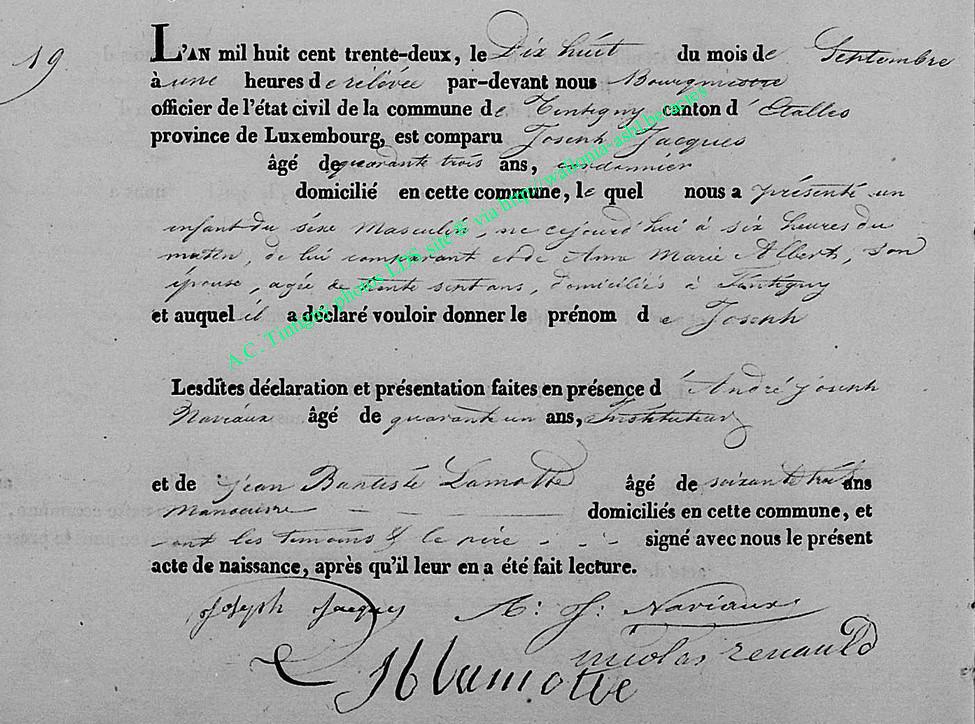 19.
L'AN mil huit cent trente-deux, le Dix huit du mois de Septembre
à une heures de relévée par-devant nous Bourgmestre
officier de l'état civil de la commune de Tintigny canton d'Etalles
province de Luxembourg, est comparu Joseph Jacques
âgé de quarante trois ans, cordonnier
domicilié en cette commune, le quel nous a présenté un
enfant du séxe Masculin, né cejourd'hui à six heures du
matin, de lui comparant et de Anna Marie Albert, son
épouse, agée de trente sept ans, domiciliés à Tintigny
et auquel il a déclaré vouloir donner le prénom de Joseph
Lesdites déclaration et présentation faites en présence d'André Joseph
Naviaux âgé de quarante un ans, Instituteur
et de Jean Baptiste Lamotte âgé de soixante trois ans
Manoeuvre domiciliés en cette commune, et
ont les temoins & le père signé avec nous le présent
acte de naissance, après qu'il leur en a été fait lecture.
Joseph Jacques A: J: Naviaux
nicolas renauld
JB Lamotte
A.C. Tintigny photos LDS site © via http://wallonia-asbl.be/actes